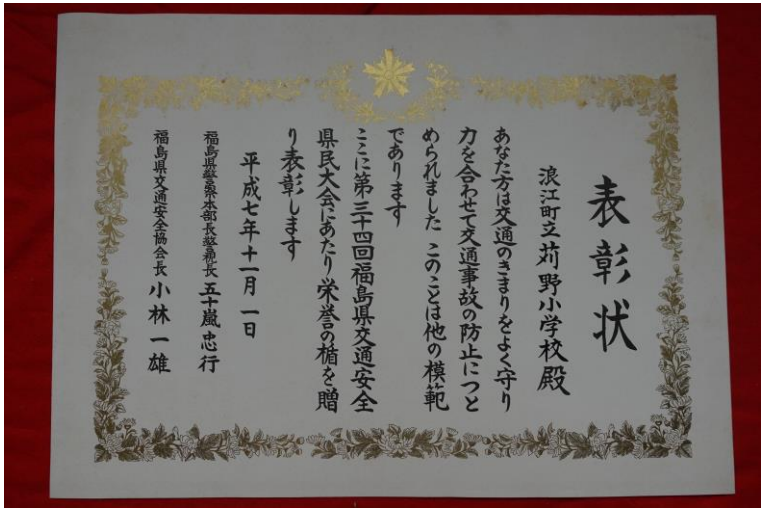 表彰状
浪江町立苅野小学校殿
あなた方は交通のきまりをよく守り
力を合わせて交通事故の防止につと
められました このことは他の模範
であります
ここに第三十四回福島県交通安全
県民大会にあたり栄誉の楯を贈
り表彰します
平成七年十一月一日
福島県警察本部長警視長 五十嵐忠行
福島県交通安全協会長 小林一雄